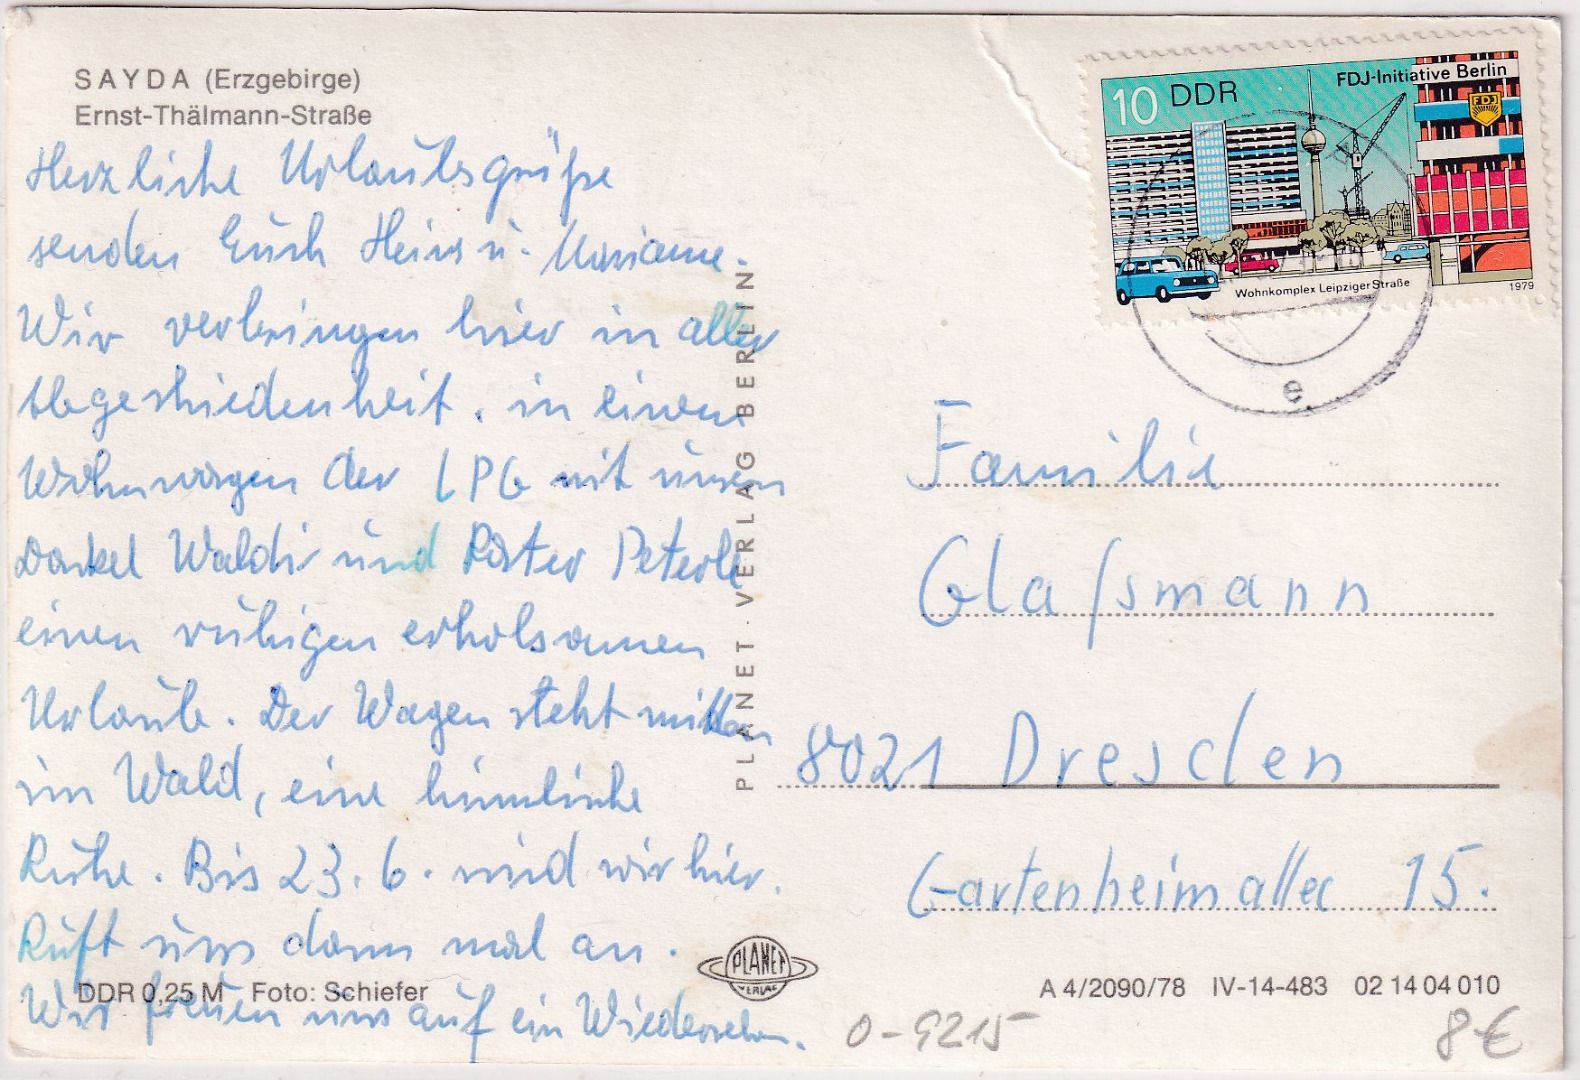 SAYDA (Erzgebirge)
Ernst-Thälmann-Straße
Herzliche Urlaubsgrüße
senden Euch Heinz u. Marianne.
Wir verbringen hier in aller
Abgeschiedenheit, in einem
Wohnwagen der LPG mit unserm
Dackel Waldi und Kater Peterle
einen ruhigen erholsamen
Urlaub. Der Wagen steht mitten
im Wald, eine himmlische
Ruhe. Bis 23. 6. sind wir hier.
Ruft uns dann mal an.
Wir freuen uns auf ein Wiedersehen.
DDR 0,25 M Foto: Schiefer
PLANET · VERLAG BERLIN
PLANET
VERLAG
10 DDR
FDJ-Initiative Berlin
FDJ
Wohnkomplex Leipziger Straße
1979
e
Familie
Glaßmann
8021 Dresden
Gartenheimallee 15.
A 4/2090/78 IV-14-483 02 14 04 010
0-9215
8€